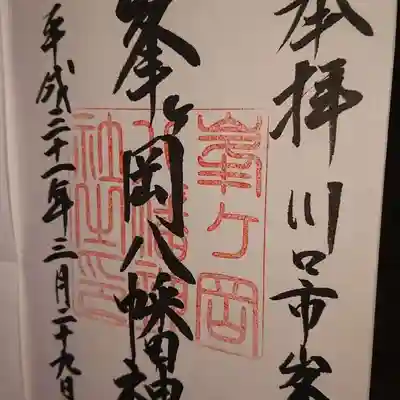 奉拝 川口市峯
峯ヶ岡八幡神
平成三十一年三月二十九日
峯ヶ岡
八幡神
社之印